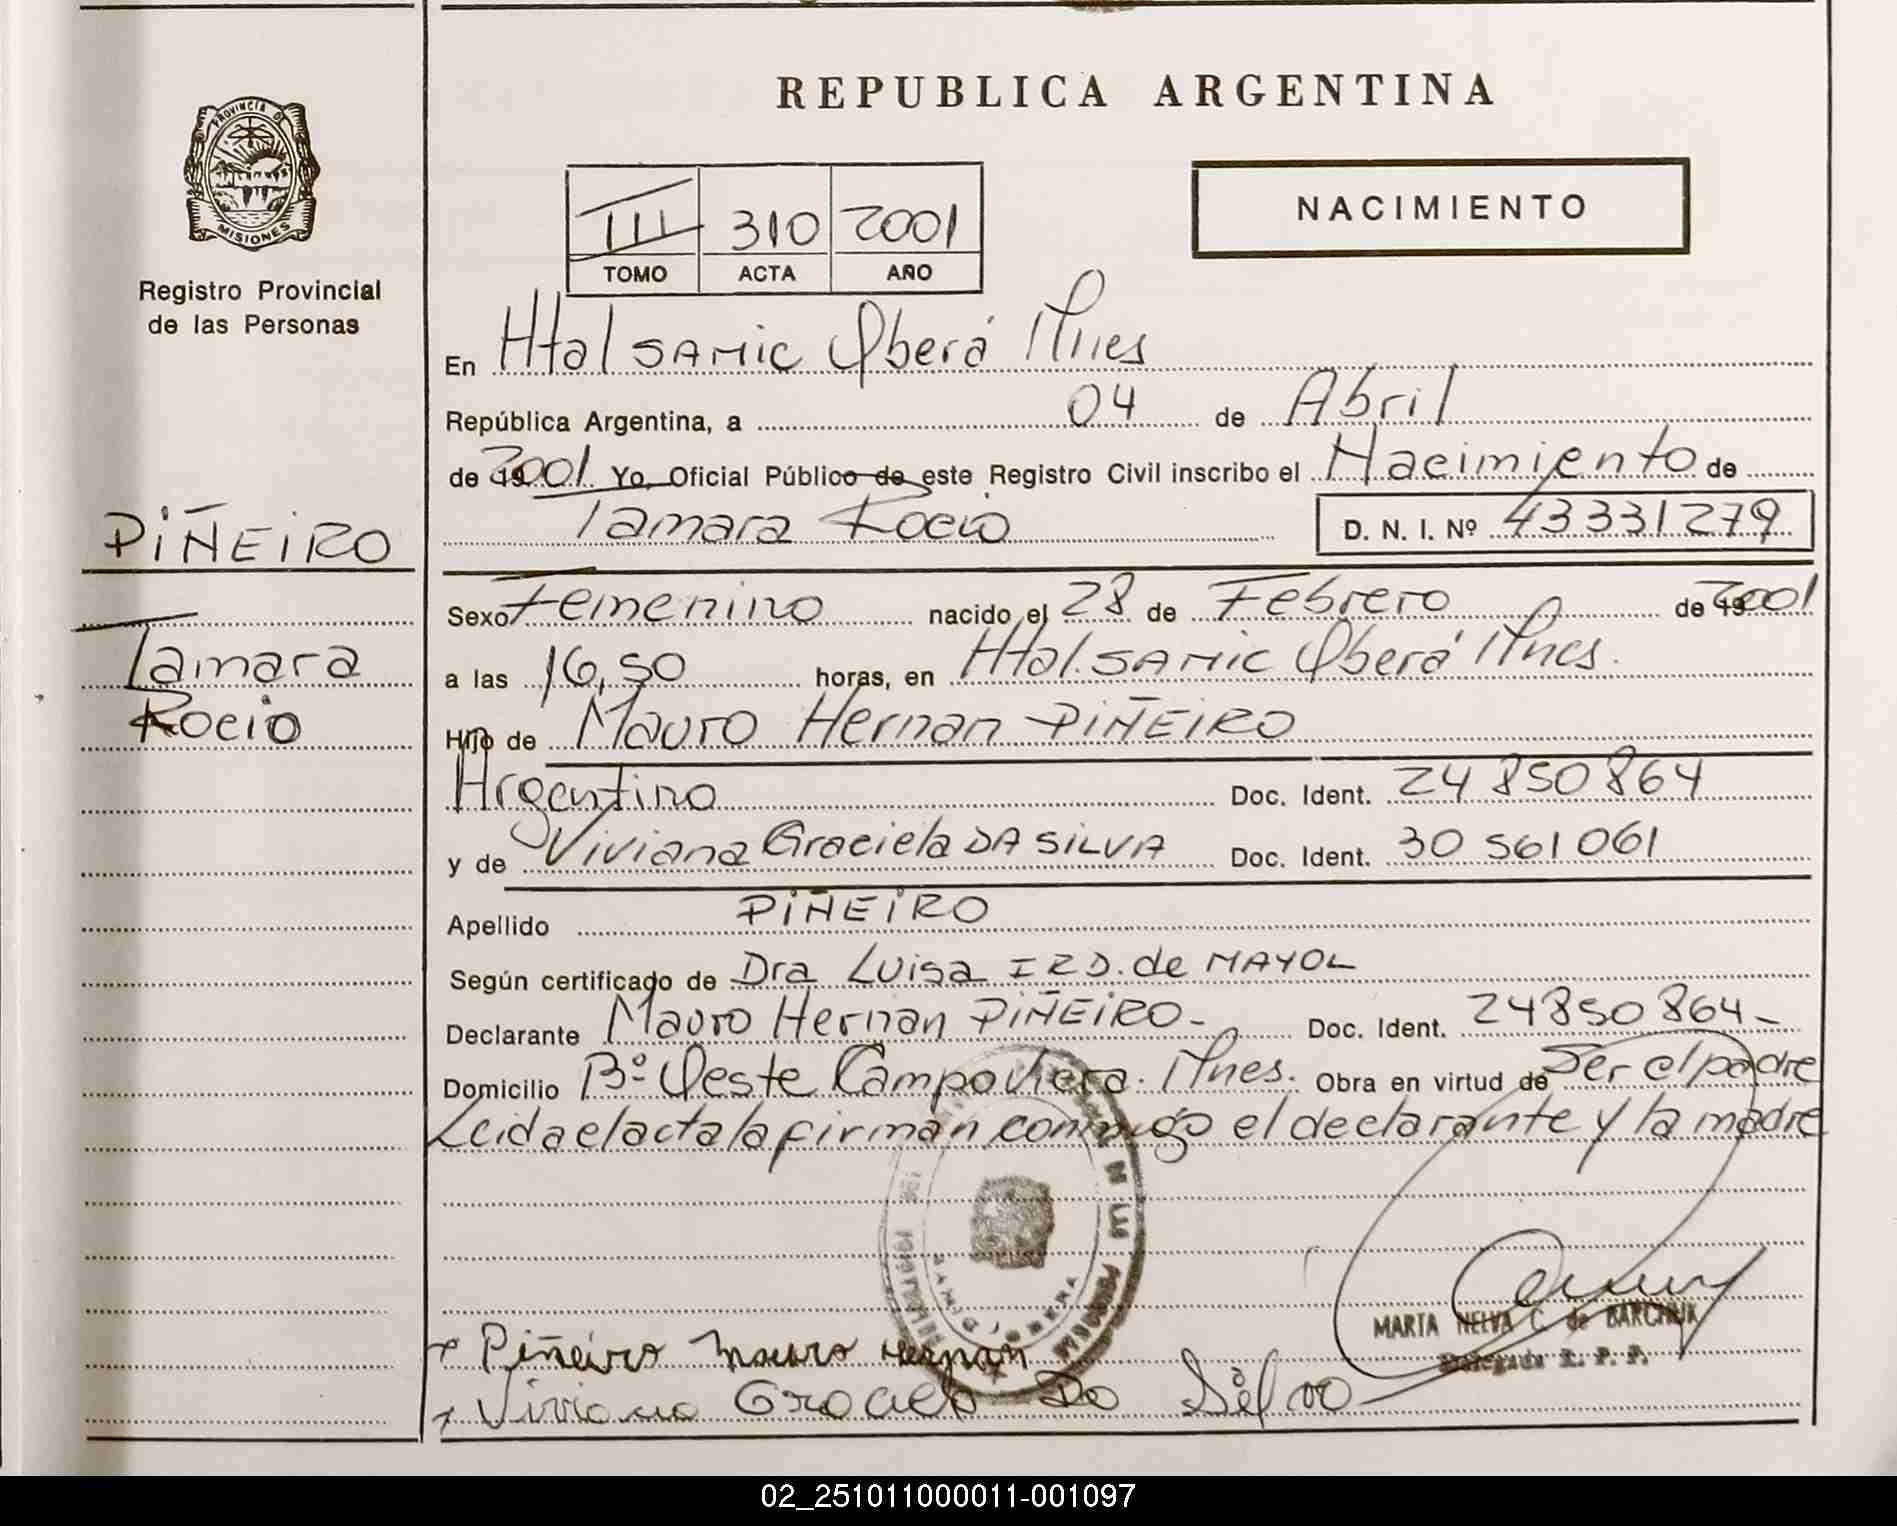 REPUBLICA ARGENTINA
PROVINCIA D
MISIONES
Registro Provincial
de las Personas
III 310 2001
TOMO ACTA AÑO
NACIMIENTO
En Htal SAMIC Oberá Mnes
República Argentina, a 04 de Abril
de 2001 Yo, Oficial Público de este Registro Civil inscribo el Nacimiento de
Tamara Rocio D. N. I. Nº 43331279
PIÑEIRO
Tamara
Rocio
Sexo Femenino nacido el 28 de Febrero de 2001
a las 16,50 horas, en Htal. SAMIC Oberá Mnes.
Hijo de Mauro Hernan PIÑEIRO
Argentino Doc. Ident. 24 850 864
y de Viviana Graciela DA SILVA Doc. Ident. 30 561 061
Apellido PIÑEIRO
Según certificado de Dra Luisa I.R.D. de MAYOL
Declarante Mauro Hernan PIÑEIRO - Doc. Ident. 24850 864 -
Domicilio Bº Oeste Campo Viera. Mnes. Obra en virtud de Ser el padre
Leida el acta la firman conmigo el declarante y la madre
MARTA NELVA C. de BARCHUK
Delegada R. P. P.
x Piñeiro Mauro Hernan
x Viviana Graciela Da Silva
02_251011000011-001097